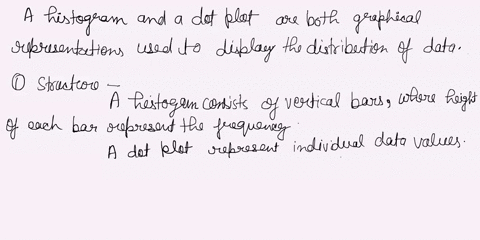 A histogram and a dot plot are both graphical
representations used to display the distribution of data.
① Structure —
A histogram consists of vertical bars, where height
of each bar represent the frequency.
A dot plot represent individual data values.